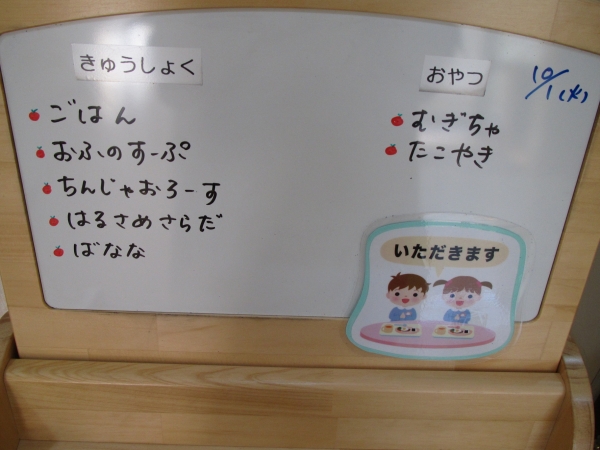 きゅうしょく
ごはん
おふのすーぷ
ちんじゃおろーす
はるさめさらだ
ばなな
おやつ
10/1(水)
むぎちゃ
たこやき
いただきます